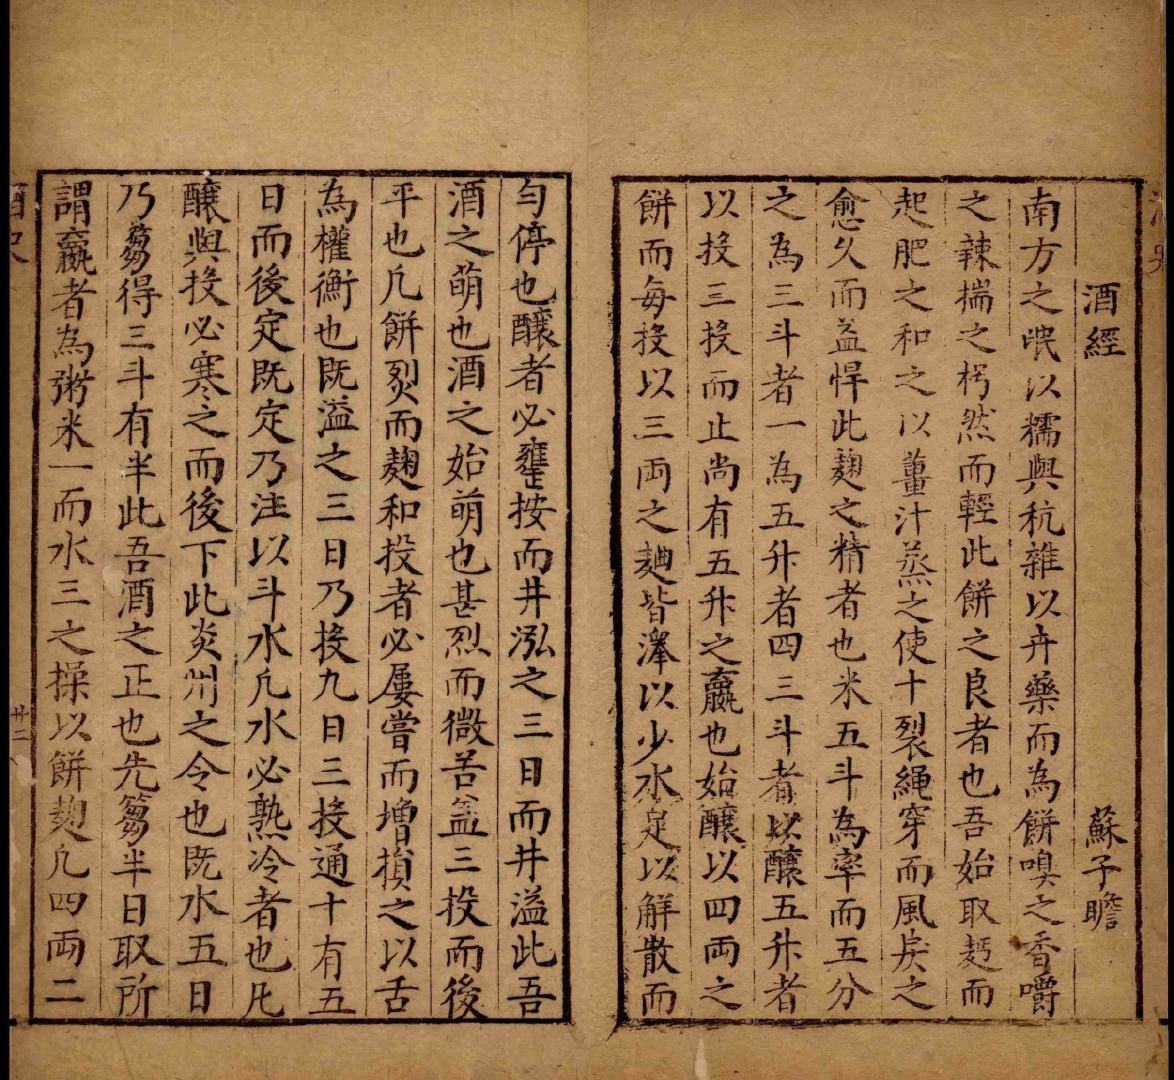 酒經 蘇子瞻
南方之氓以糯與秔雜以卉藥而為餅嗅之香嚼
之辣揣之枵然而輕此餅之良者也吾始取麪而
起肥之和之以薑汁蒸之使十裂繩穿而風戾之
愈久而益悍此麴之精者也米五斗為率而五分
之為三斗者一為五升者四三斗者以釀五升者
以投三投而止尚有五升之羸也始釀以四兩之
餅而每投以三兩之麴皆澤以少水足以解散而
勻停也釀者必甕按而井泓之三日而井溢此吾
酒之萌也酒之始萌也甚烈而微苦盖三投而後
平也凡餅烈而麴和投者必屢嘗而增損之以舌
為權衡也既溢之三日乃投九日三投通十有五
日而後定既定乃注以斗水凡水必熟冷者也凡
釀與投必寒之而後下此炎州之令也既水五日
乃篘得三斗有半此吾酒之正也先篘半日取所
謂羸者為粥米一而水三之操以餅麴凡四兩二
酒史
廿二